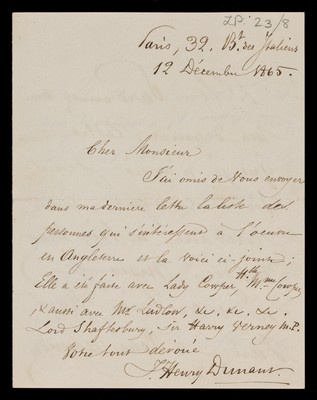 Z.P.: 23/8
Paris, 32. Bd. des Italiens
12 Décembre 1865.
Cher Monsieur
J'ai omis de vous envoyer
dans ma dernière lettre la liste des
personnes qui s'intéressent à l'oeuvre
en Angleterre et la voici ci-jointe;
Elle a été faite avec Lady Cowper, Hble Mme Cowper,
& aussi avec Mr. Ludlow, &c. &c. &c.
Lord Shaftesbury, Sir Harry Verney M.P.
Votre tout dévoué
J. Henry Dunant.